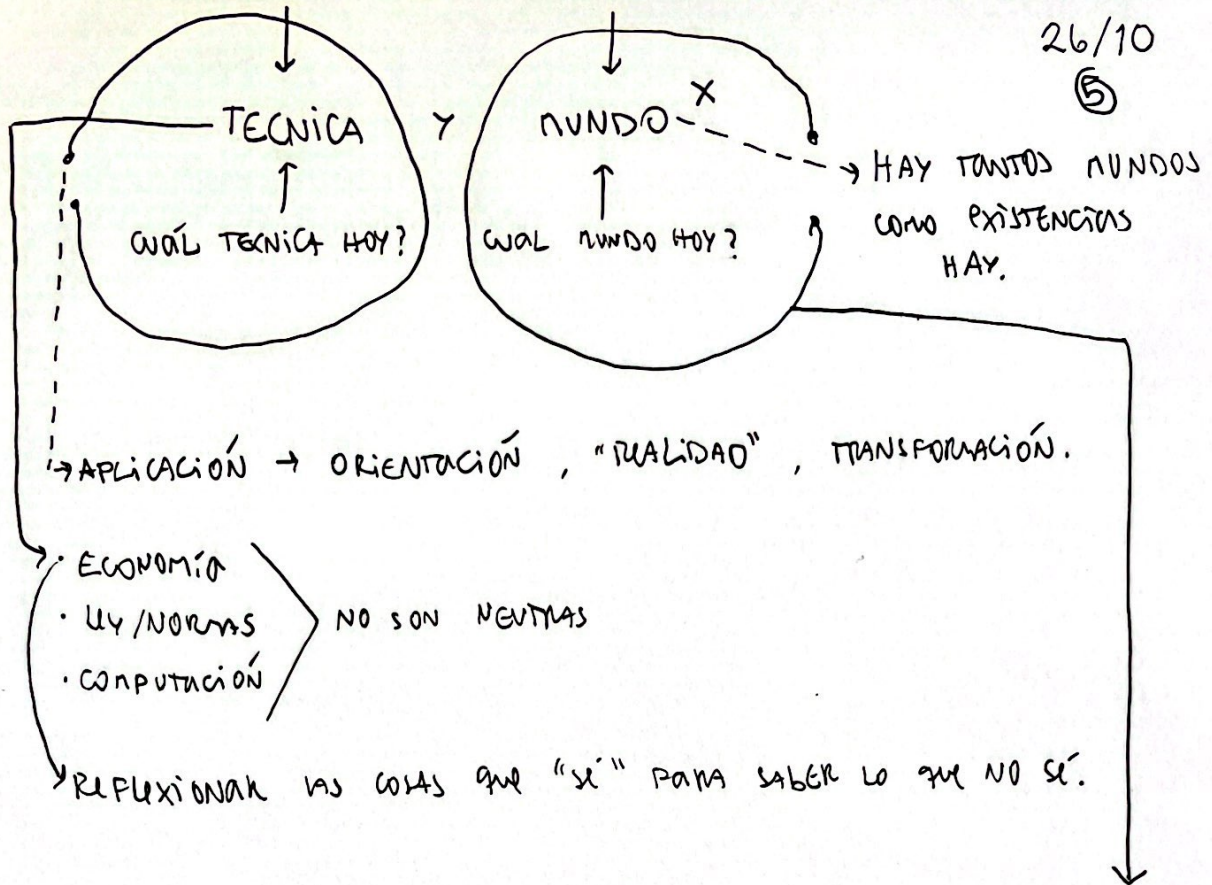 26/10
5
TECNICA Y MUNDO X
CUÁL TECNICA HOY?
CUAL MUNDO HOY?
HAY TANTOS MUNDOS
COMO EXISTENCIAS
HAY.
APLICACIÓN → ORIENTACIÓN, "REALIDAD", TRANSFORMACIÓN.
· ECONOMÍA
· LEY/NORMAS
· COMPUTACIÓN
NO SON NEUTRAS
REFLEXIONAR LAS COSAS QUE "SÉ" PARA SABER LO QUE NO SÉ.